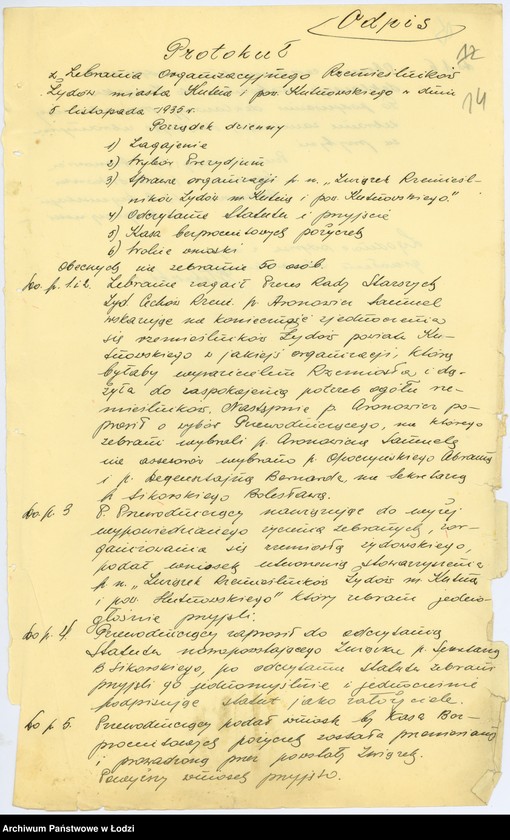 Odpis
12
14
Protokuł
z Zebrania Organizacyjnego Rzemieślników
Żydów miasta Kutna i pow. Kutnowskiego w dniu
5 listopada 1935 r.
Porządek dzienny
1) Zagajenie
2) Wybór Prezydjum
3) Sprawa organizacji p. n. „Związek Rzemieśl-
ników Żydów m. Kutna i pow. Kutnowskiego."
4) Odczytanie Statutu i przyjęcie
5) Kasa bezprocentowych pożyczek
6) Wolne wnioski
Obecnych na zebraniu 50 osób.
Do p. 1 i 2. Zebranie zagaił Prezes Rady Starszych
Żyd. Cechów Rzem. p. Aronowicz Samuel
wskazując na konieczność zjednoczenia
się rzemieślników Żydów powiatu Ku-
tnowskiego w jakiejś organizacji, która
byłaby wyrazicielem Rzemiosła i dą-
żyła do zaspokojenia potrzeb ogółu rze-
mieślników. Następnie p. Aronowicz po-
prosił o wybór Przewodniczącego, na którego
zebrani wybrali p. Aronowicza Samuela
na assesorów wybrano p. Opoczyńskiego Abrama
i p. Bernarda, na Sekretarza
p. Sikorskiego Bolesława.
Do p. 3 P. Przewodniczący nawiązując do wyżej
wypowiedzianego życzenia zebranych, zor-
ganizowania się rzemiosła żydowskiego,
podał wniosek utworzenia stowarzyszenia
p. n. „Związek Rzemieślników Żydów m. Kutna
i pow. Kutnowskiego" który zebrani jedno-
głośnie przyjęli.
Do p. 4. Przewodniczący zaprosił do odczytania
Statutu nowopowstającego Związku p. Sekretarza
B. Sikorskiego, po odczytaniu statutu zebrani
przyjęli go jednomyślnie i jednocześnie
podpisując statut jako założyciele.
Do p. 5. Przewodniczący podał wniosek by Kasa Bez-
procentowych pożyczek została przemianowana
i prowadzona przez powstały Związek.
Powyższy wniosek przyjęto.
Archiwum Państwowe w Łodzi